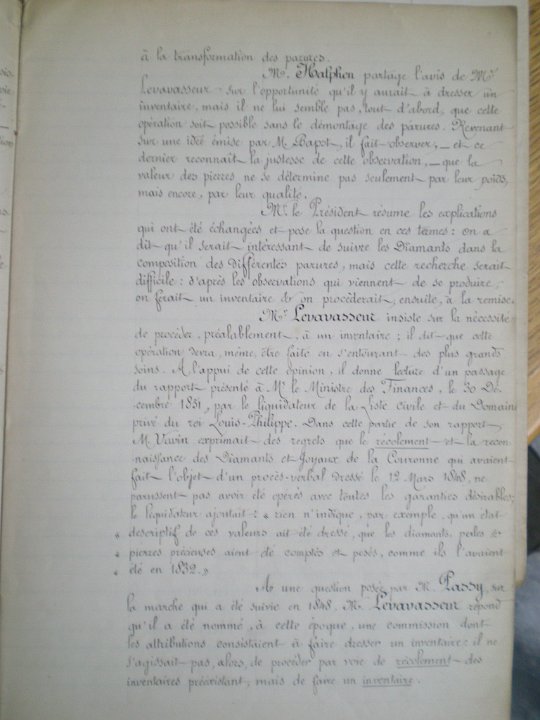 à la transformation des parures.
Mr. Halphen partage l'avis de Mr
Levavasseur sur l'opportunité qu'il y aurait à dresser un
inventaire, mais il ne lui semble pas, tout d'abord, que cette
opération soit possible sans le démontage des parures. Revenant
sur une idée émise par M. Bapst, il fait observer, — et ce
dernier reconnaît la justesse de cette observation, — que la
valeur des pierres ne se détermine pas seulement par leur poids,
mais encore, par leur qualité.
Mr. le Président résume les explications
qui ont été échangées et pose la question en ces termes : on a
dit qu'il serait intéressant de suivre les Diamants dans la
composition des différentes parures, mais cette recherche serait
difficile : d'après les observations qui viennent de se produire,
on ferait un inventaire & on procéderait, ensuite, à la remise.
Mr. Levavasseur insiste sur la nécessité
de procéder, préalablement, à un inventaire ; il dit que cette
opération devra, même, être faite en s'entourant des plus grands
soins. A l'appui de cette opinion, il donne lecture d'un passage
du rapport présenté à Mr le Ministre des Finances, le 30 Dé-
cembre 1851, par le liquidateur de la Liste Civile et du Domaine
privé du roi Louis-Philippe. Dans cette partie de son rapport,
M. Vavin exprimait des regrets que le récolement et la recon-
naissance des Diamants et Joyaux de la Couronne qui avaient
fait l'objet d'un procès-verbal dressé le 12 Mars 1848, ne
parussent pas avoir été opérés avec toutes les garanties désirables;
le liquidateur ajoutait : « rien n'indique, par exemple, qu'un état
« descriptif de ces valeurs ait été dressé, que les diamants, perles &
« pierres précieuses aient été comptés et pesés, comme ils l'avaient
« été en 1832. »
A une question posée par M. Passy, sur
la marche qui a été suivie en 1848, Mr. Levavasseur répond
qu'il a été nommé, à cette époque, une commission dont
les attributions consistaient à faire dresser un inventaire : il ne
s'agissait pas, alors, de procéder par voie de récolement des
inventaires préexistant, mais de faire un inventaire.